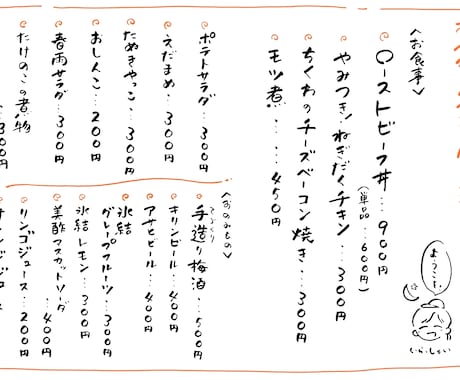 <お食事>
ローストビーフ丼…900円
(単品…600円)
やみつき!ねぎだくチキン…300円
ちくわのチーズベーコン焼き…300円
モツ煮……450円
ポテトサラダ…300円
えだまめ…300円
たぬきやっこ…300円
おしんこ…200円
春雨サラダ…300円
たけのこの煮物
…300円
<おのみもの>
手造り梅酒…500円
てづくり
キリンビール…400円
アサヒビール…400円
氷結
グレープフルーツ…300円
氷結レモン…300円
美酢マスカットソーダ
…400円
リンゴジュース…200円
ようこそ
いらっしゃい